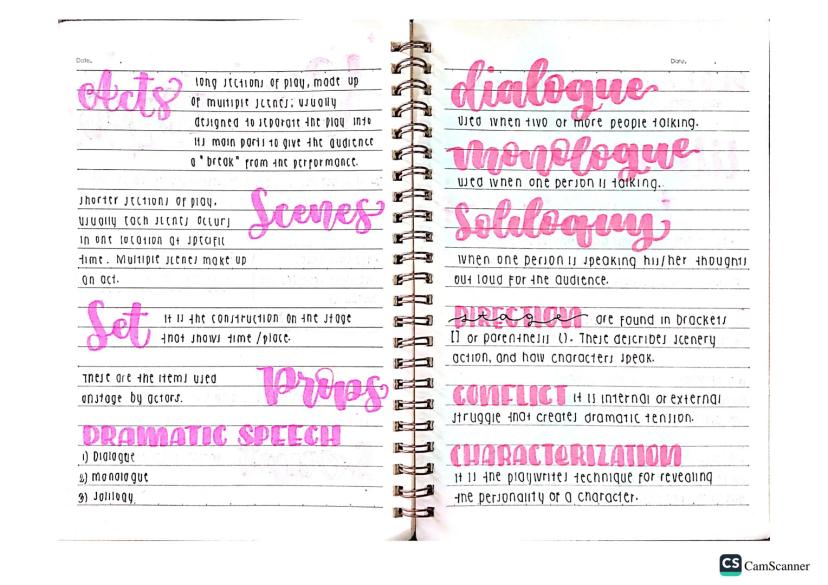 Date.
Acts
long sections of play, made up
of multiple scenes; usually
designed to separate the play into
its main parts to give the audience
a "break" from the performance.
shorter sections of play,
usually each scenes occurs
in one location at specific
time. Multiple scenes make up
an act.
Scenes
Set
It is the construction on the stage
that shows time /place.
These are the items used
onstage by actors.
Props
DRAMATIC SPEECH
1) Dialogue
2) monologue
3)
Date.
dialogue
used when two or more people talking.
monologue
used when one person is talking.
Soliloquy
when one person is speaking his/her thoughts
out loud for the audience.
stage DIRECTION are found in brackets
[] or parenthesis (). These describes scenery
action, and how characters speak.
CONFLICT it is internal or external
struggle that creates dramatic tension.
CHARACTERIZATION
It is the playwrites technique for revealing
the personality of a character.
CS CamScanner